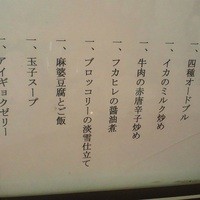 一、四種オードブル
一、イカのミルク炒め
一、牛肉の赤唐辛子炒め
一、フカヒレの醤油煮
一、ブロッコリーの淡雪仕立て
一、麻婆豆腐とご飯
一、玉子スープ
一、アイギョクゼリー